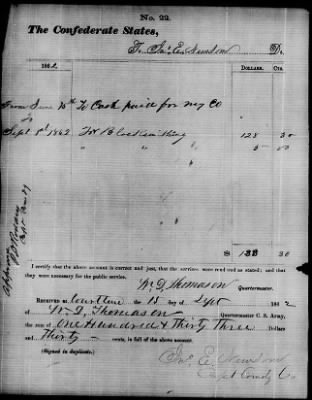 No. 22.
The Confederate States,
To Jno. E. Newsom Dr.
1862. DOLLARS. CTS.
From June 15th To Cash paid for my Co
To
Sept 1st 1862 For Blacksmithing 128 30
" " " 5 00
$ 133 30
I certify that the above account is correct and just, that the services were rendered as stated; and that
they were necessary for the public service.
W. D. Thomason
Quartermaster.
Approved
RECEIVED at the 15 day of Sept 1862
of W. D. Thomason Quartermaster C. S. Army,
the sum of One Hundred & Thirty Three Dollars
and Thirty cents, in full of the above account.
(Signed in duplicate.)
Jno. E. Newsom
Capt Comdg Co